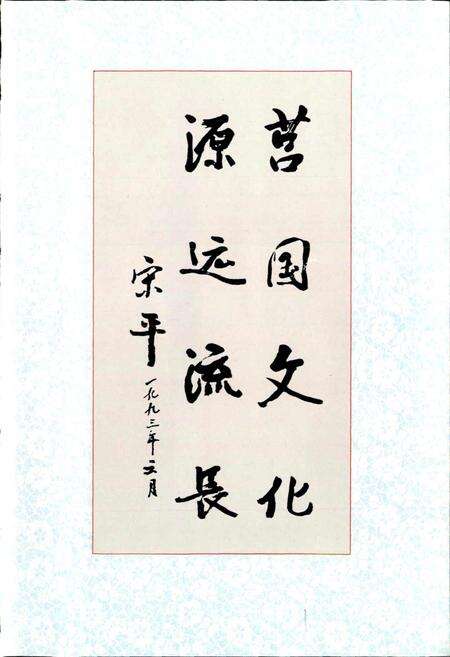 莒国文化
源远流长
宋平
一九九三年二月